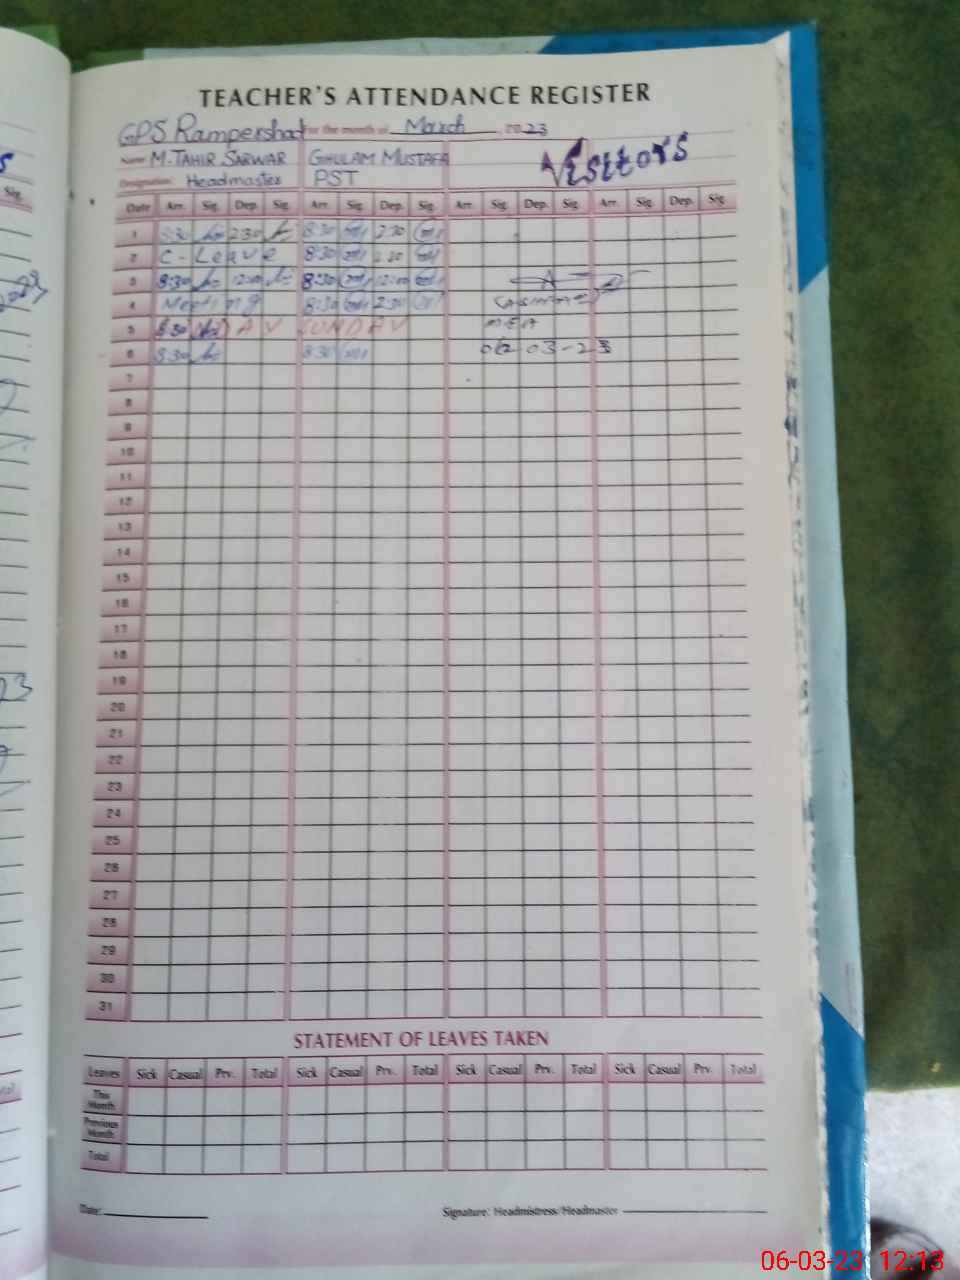 TEACHER'S ATTENDANCE REGISTER
GPS Rampershad For the month of March, 2023
Name: M. TAHIR SARWAR GHULAM MUSTAFA Visitors
Designation: Headmaster PST
Date Arr. Sig. Dep. Sig. Arr. Sig. Dep. Sig. Arr. Sig. Dep. Sig. Arr. Sig. Dep. Sig.
1 8:30 2:30 8:30 2:30
2 C-Leave 8:30 2:30
3 8:30 12:00 8:30 12:00
4 Meeting 8:30 2:30
5 8:30 SUNDAY
MEA
6 8:30 8:30 06 03-23
7
8
9
10
11
12
13
14
15
16
17
18
19
20
21
22
23
24
25
26
27
28
29
30
31
STATEMENT OF LEAVES TAKEN
Leaves Sick Casual Prv. Total Sick Casual Prv. Total Sick Casual Prv. Total Sick Casual Prv. Total
This Month
Previous Month
Total
Date: Signature: Headmistress/Headmaster
06-03-23 12:13